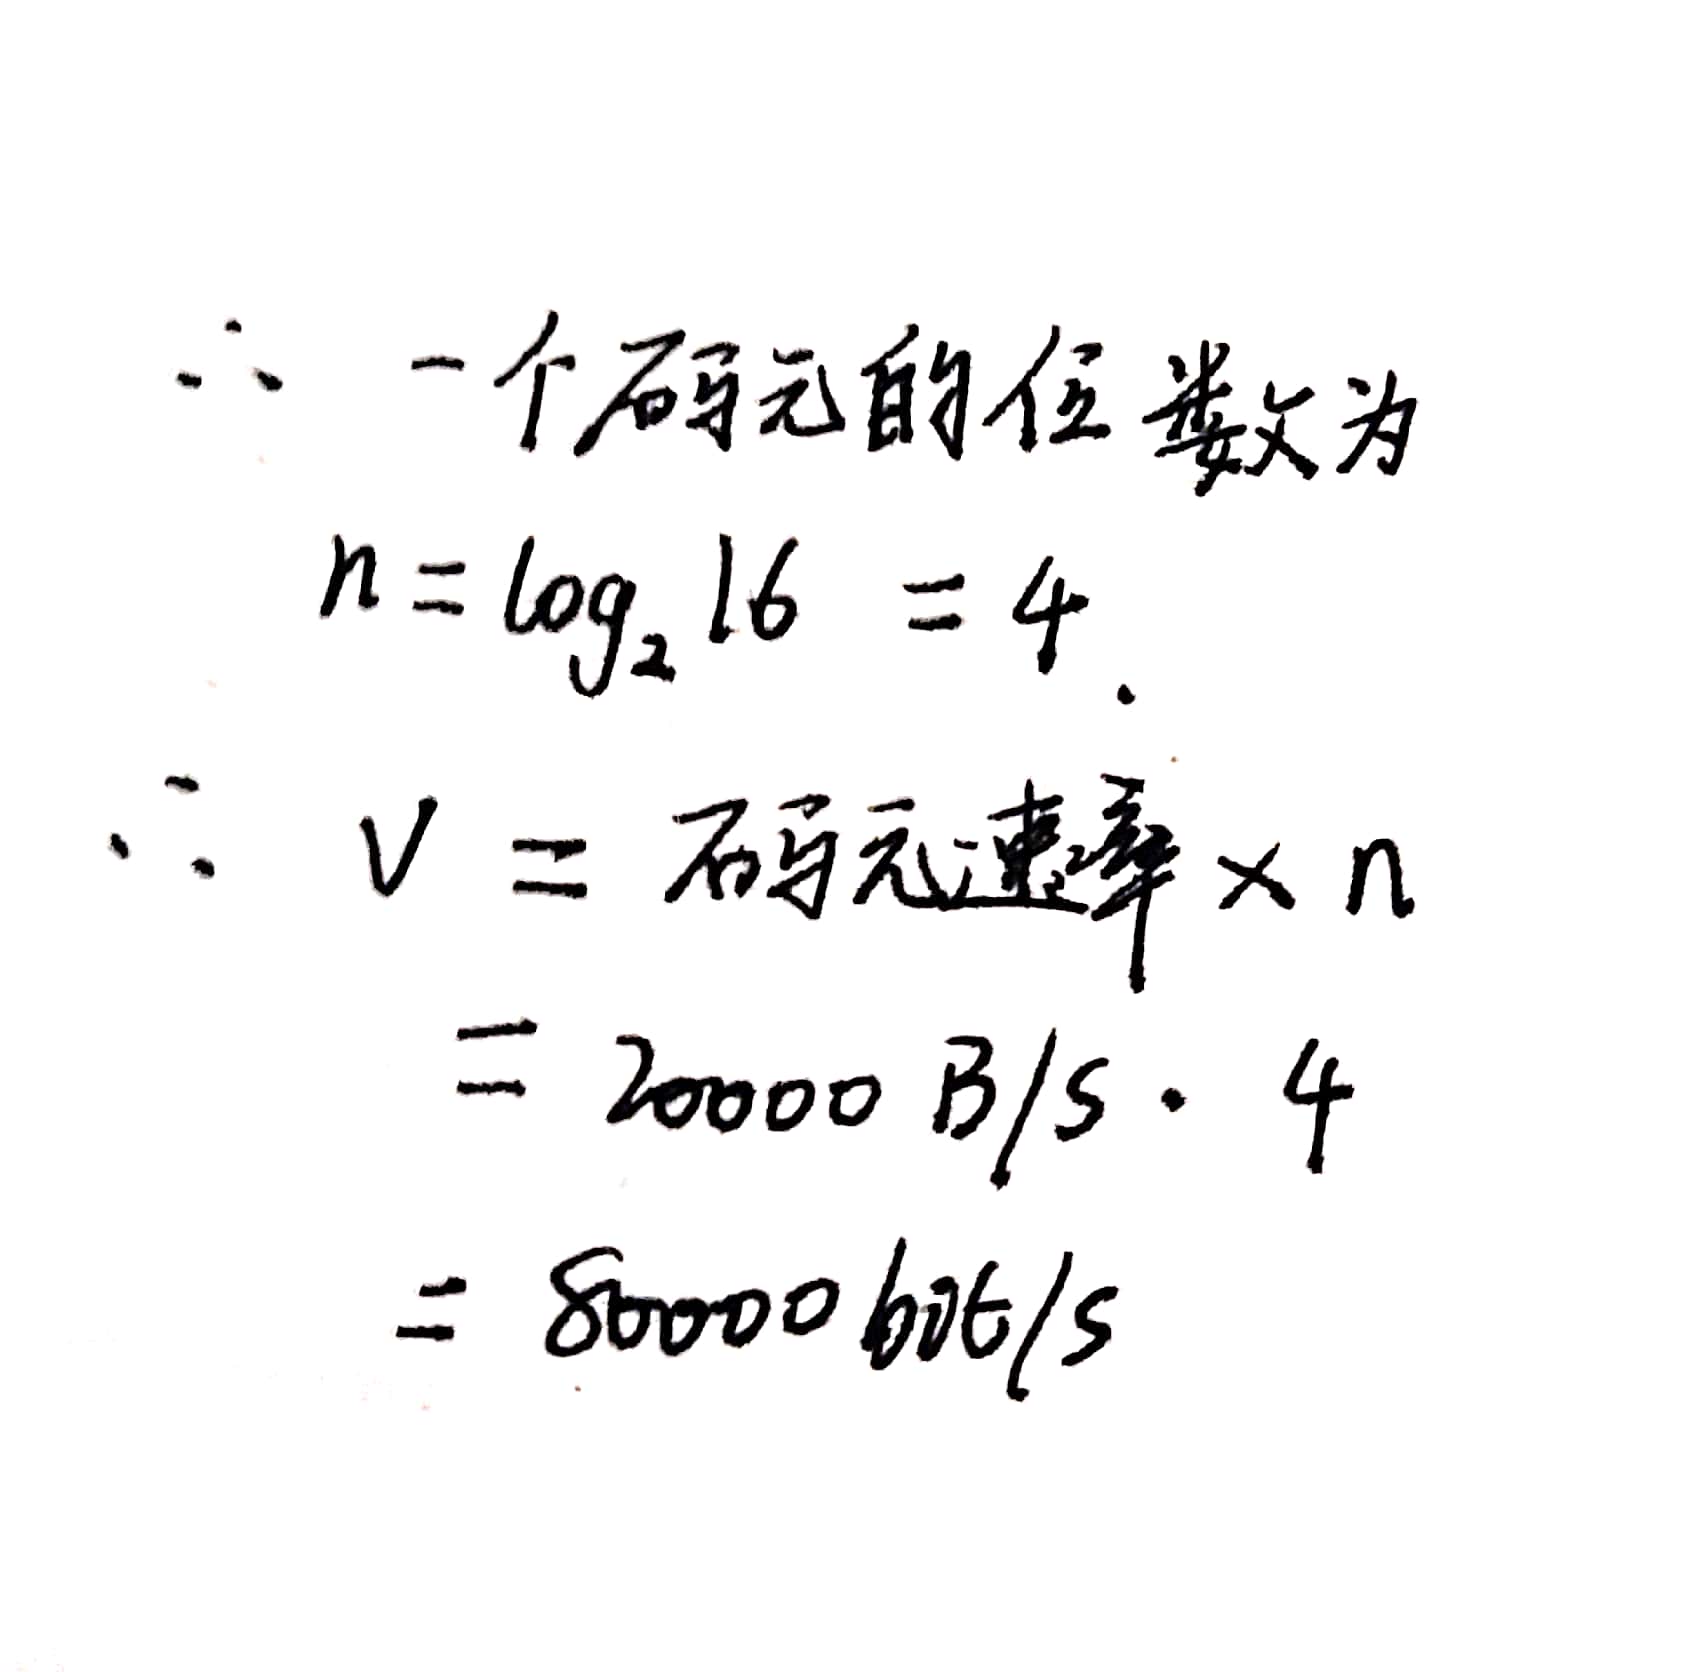 ∴ 一个码元的位数为
n = log₂ 16 = 4.
∴ V = 码元速率 × n
= 20000 B/s · 4
= 80000 bit/s